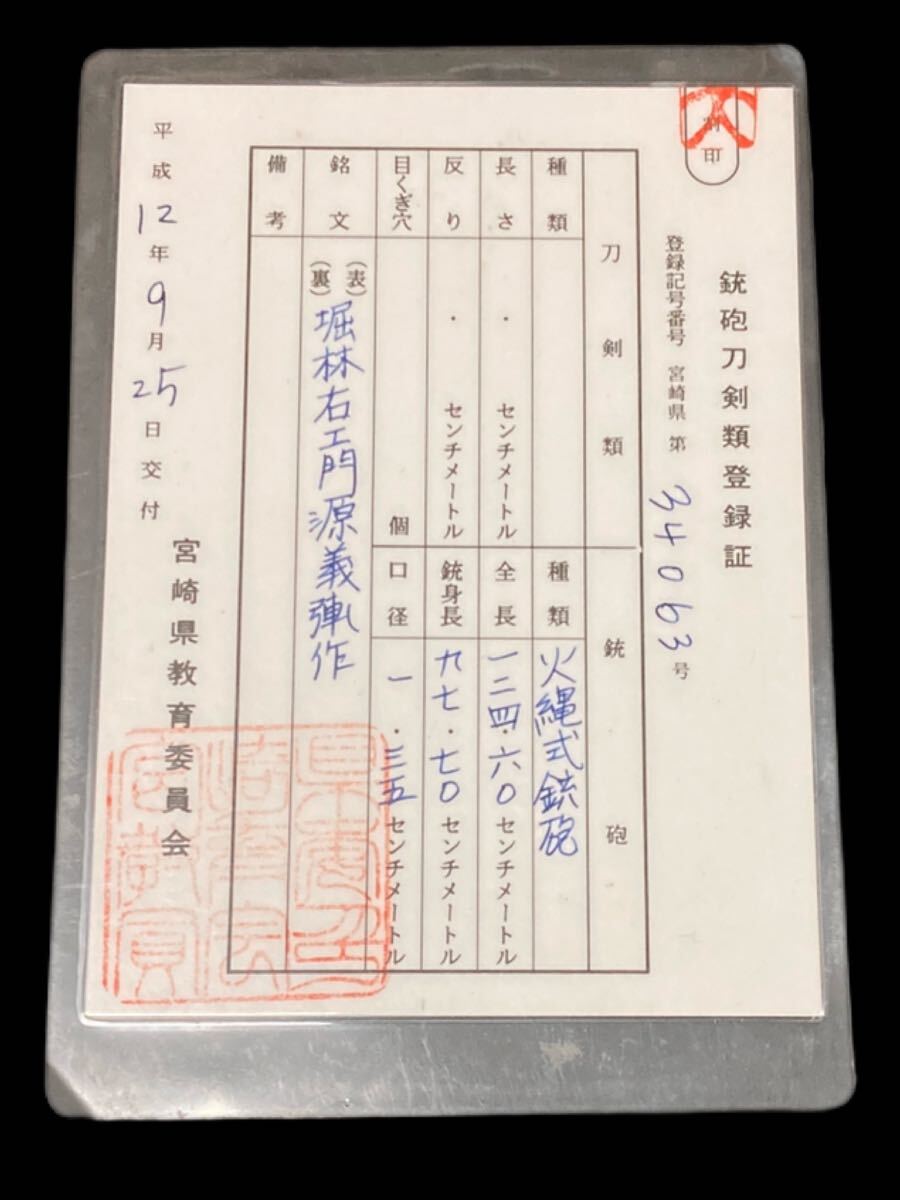 割印
銃砲刀剣類登録証
登録記号番号 宮崎県 第 34063 号
刀剣類 銃砲
種類 種類 火縄式銃砲
長さ ・ センチメートル 全長 一二四・六〇 センチメートル
反り ・ センチメートル 銃身長 九七・七〇 センチメートル
目くぎ穴 個 口径 一・三五 センチメートル
銘文 (表)
(裏) 堀林右エ門源義弾作
備考
宮崎県教育委員会
平成12年9月25日交付